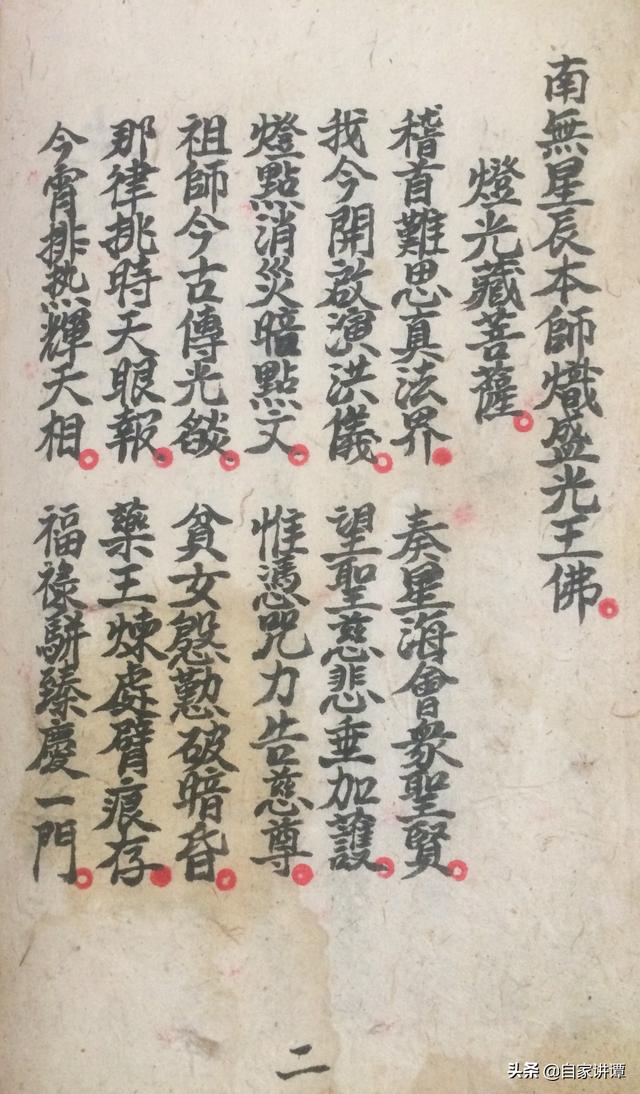 南無星辰本師熾盛光王佛
燈光藏菩薩
稽首難思真法界
奏星海會衆聖賢
我今開啟演洪儀
望聖慈悲垂加護
燈點消災暗點文
惟憑咒力告慈尊
祖師今古傳光燄
貧女慇懃破暗昏
那律挑時天眼報
藥王煉處臂痕存
今宵排熱輝天相
福祿駢臻慶一門
二
头条 @自家讲谭